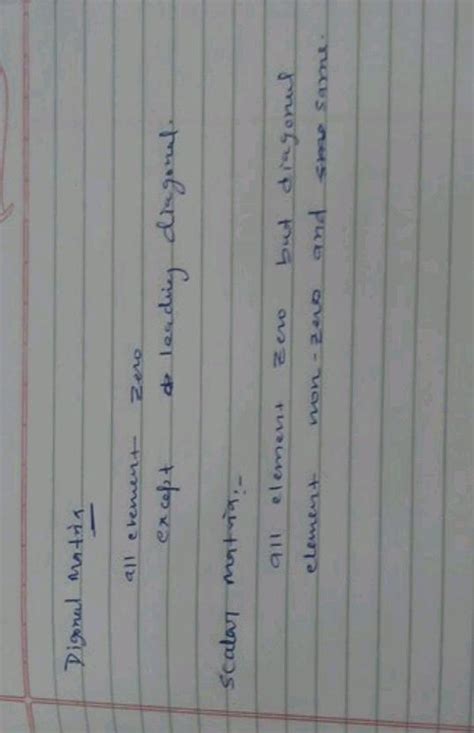 Digonal matrix
all element zero
except leading diagonal.
Scalar matrix:-
all element zero but diagonal
element non-zero and same.